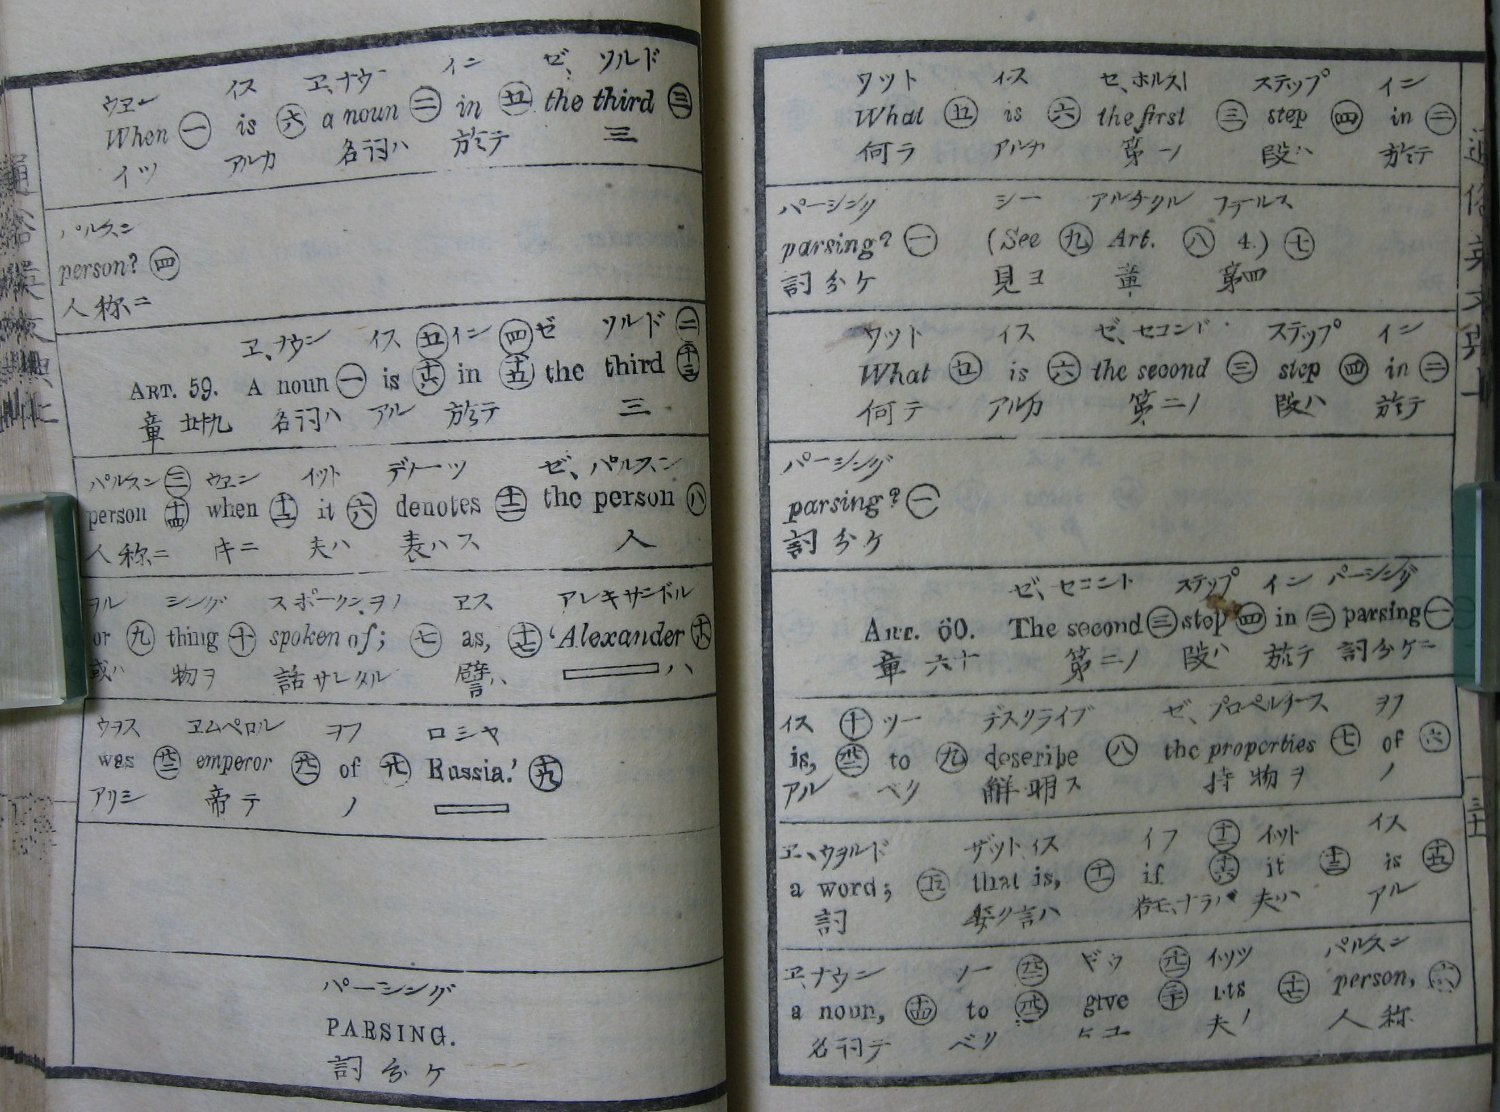 ウヱン イス ヱ、ナウン イン ゼ、 ソルド
When 一 is 六 a noun 二 in 五 the third 三
イツ アルカ 名詞ハ 於テ 三
パルスン
person? 四
人称ニ
ヱ、ナウン イス 五 イン 四 ゼ ソルド 二
ART. 59. A noun 一 is 十六 in 十五 the third 十三
章 五十九 名詞ハ アル 於テ 三
パルスン 三 ウヱン イット デノーツ ゼ、パルスン
person 十四 when 十一 it 六 denotes 十二 the person 八
人称ニ キニ 夫ハ 表ハス 人
ヲル シング スポークン、ヲフ ヱス アレキサンドル
or 九 thing 十 spoken of; 七 as, 十七 'Alexander 十八
或ハ 物ヲ 話サレタル 譬ハ ハ
ウヲス ヱムペロル ヲフ ロシヤ
was emperor of Russia.' 十九
アリシ 帝テ ノ
パーシング
PARSING.
詞分ケ
ワット イス ゼ、ホルスト ステップ イン
What 五 is 六 the first 三 step 四 in 二
何ラ アルカ 第一ノ 段ハ 於テ
パーシング シー アルチクル フヲールス
parsing? 一 (See 九 Art. 八 4.) 七
詞分ケ 見ヨ 章 第四
ワット イス ゼ、セコンド ステップ イン
What 五 is 六 the second 三 step 四 in 二
何テ アルカ 第二ノ 段ハ 於テ
パーシング
parsing? 一
詞分ケ
ゼ、セコンド ステップ イン パーシング
ART. 60. The second 三 step 四 in 二 parsing 一
章 六十 第二ノ 段ハ 於テ 詞分ケニ
イス 十 ツー デスクライブ ゼ、プロペルチース ヲフ
is, to 九 describe 八 the properties 七 of 六
アル ベク 解明ス 持物ヲ ノ
ヱ、ウヲルド ザット、イス イフ 十二 イット イス
a word; 五 that is, 十一 if 十六 it 十三 is 十五
詞 委ク言ハ 若モ、ナラバ 夫ハ アル
ヱ、ナウン ツー ギウ イッツ パルスン
a noun, 十四 to give its 十七 person, 十八
名詞テ ベク 夫ノ 人称